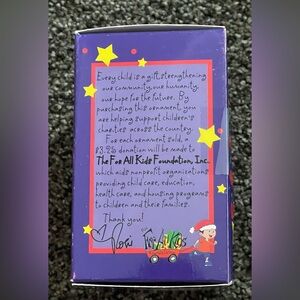 Every child is a gift, strengthening
our community, our humanity,
our hope for the future. By
purchasing this ornament, you
are helping support children's
charities across the country.
For each ornament sold, a
donation will be made to
The For All Kids Foundation, Inc.
which aids nonprofit organizations
providing child care, education,
health care, and housing programs
to children and their families.
Thank you!
Rosie For All Kids